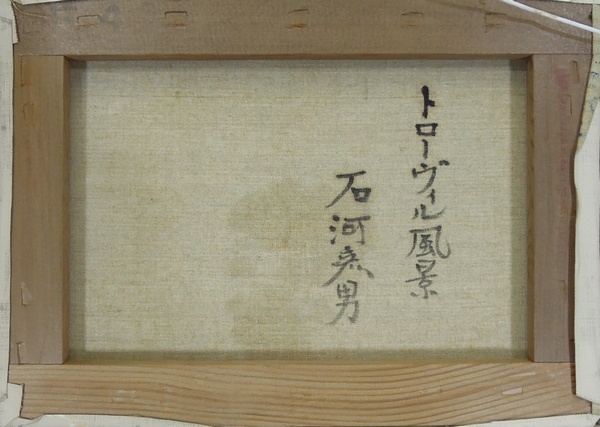 トローヴィル風景
石河彦男